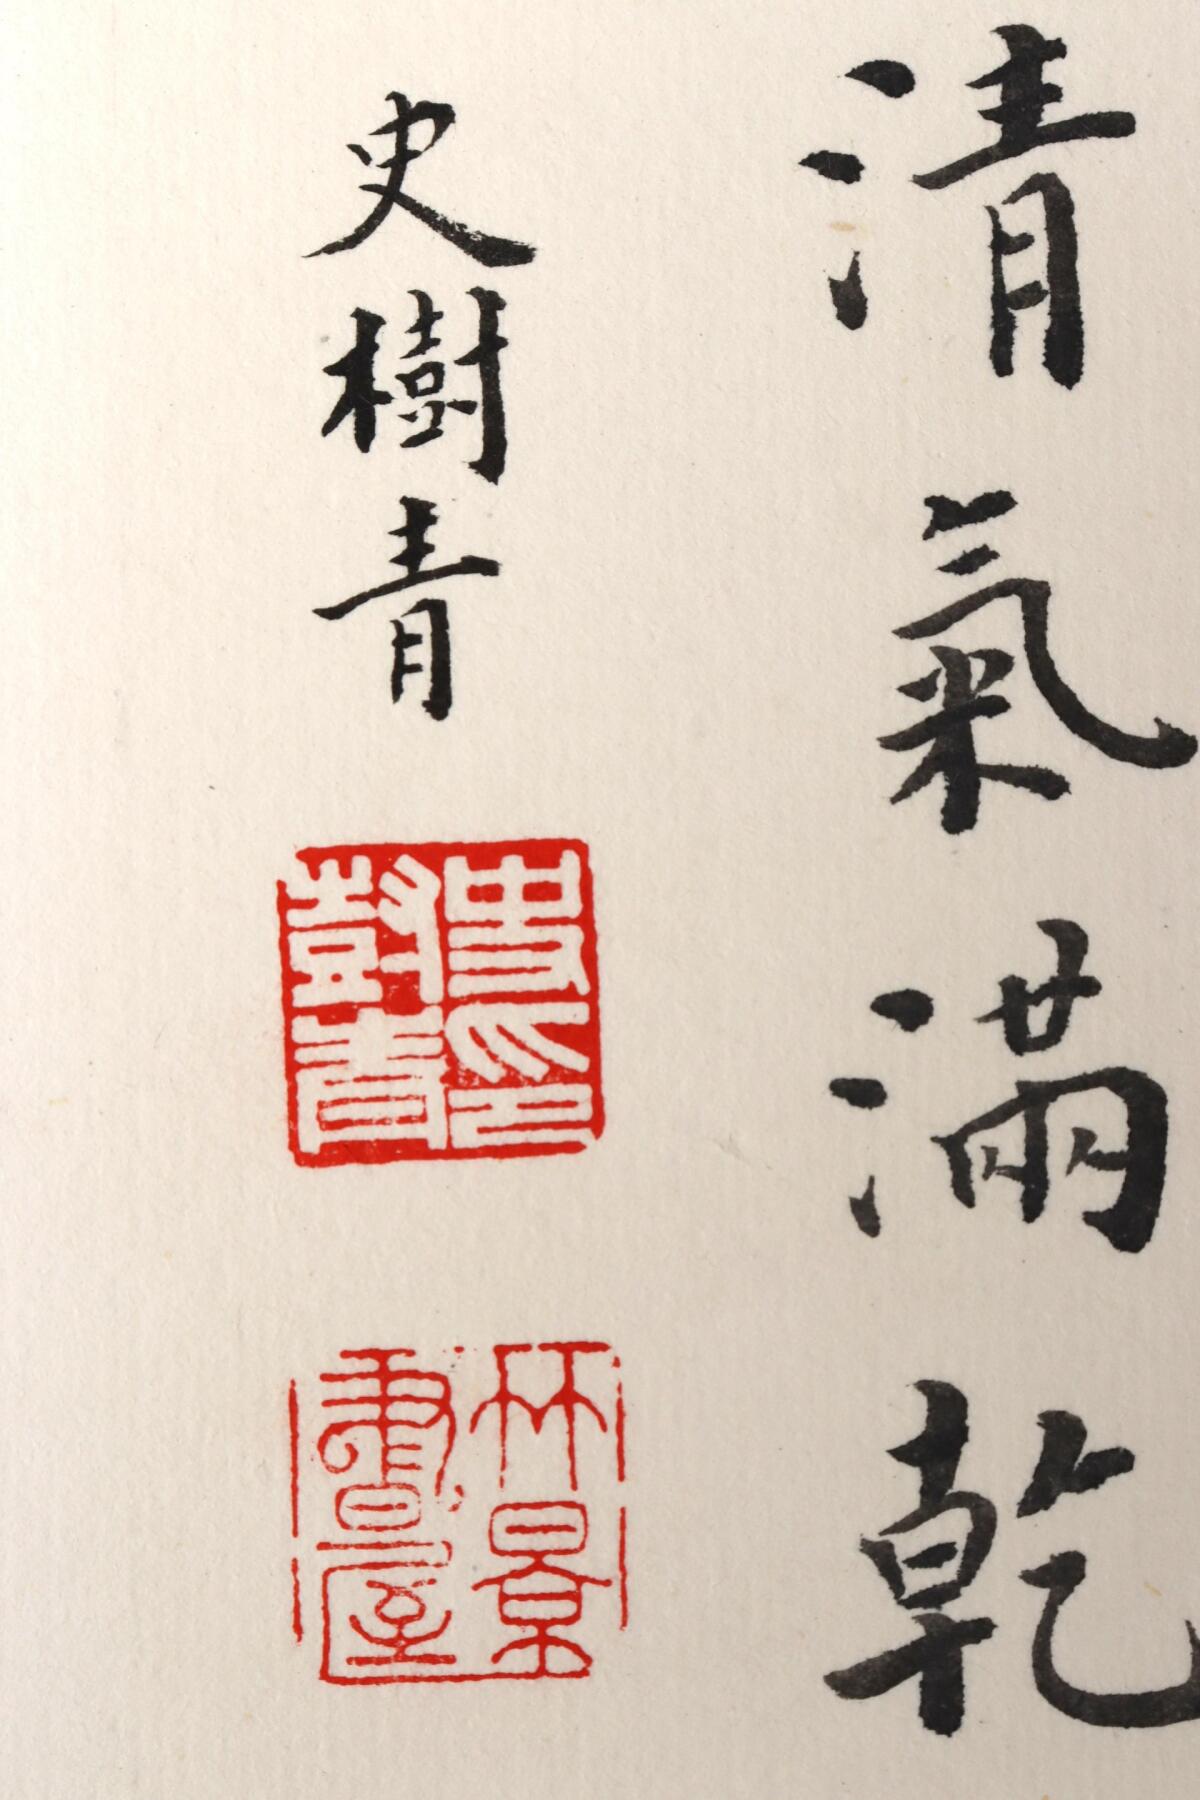 清氣滿乾
史樹青
史樹青印
竹景書屋